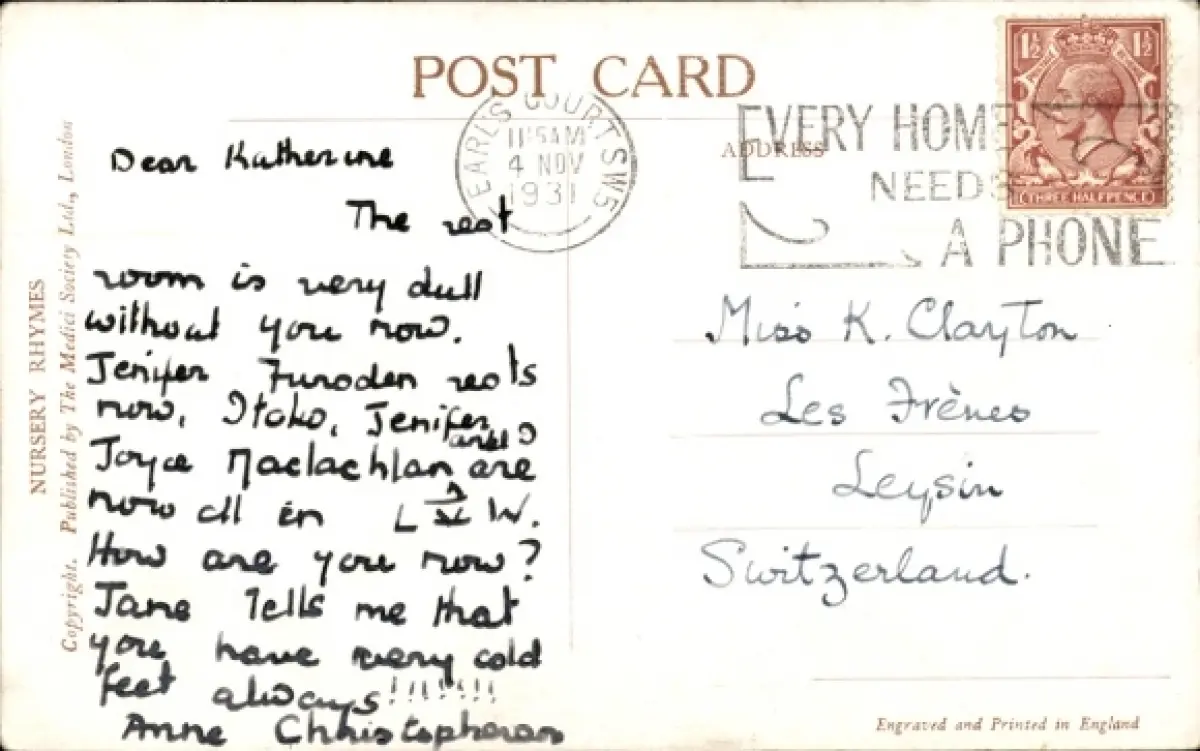 POST CARD
NURSERY RHYMES
Copyright. Published by The Medici Society Ltd., London
EARL'S COURT SW5
11 15AM
4 NOV
1931
ADDRESS
EVERY HOME
NEEDS
A PHONE
1½ 1½
THREE HALFPENCE
Dear Katherine
The rest
room is very dull
without you now.
Jenifer rests
now, Jenifer
and
Joyce Maclachlan are
now all in L W.
How are you now?
Jane Tells me that
you have very cold
feet always!!!!!!!
Anne Christopherson
Miss K. Clayton
Les Frènes
Leysin
Switzerland.
Engraved and Printed in England